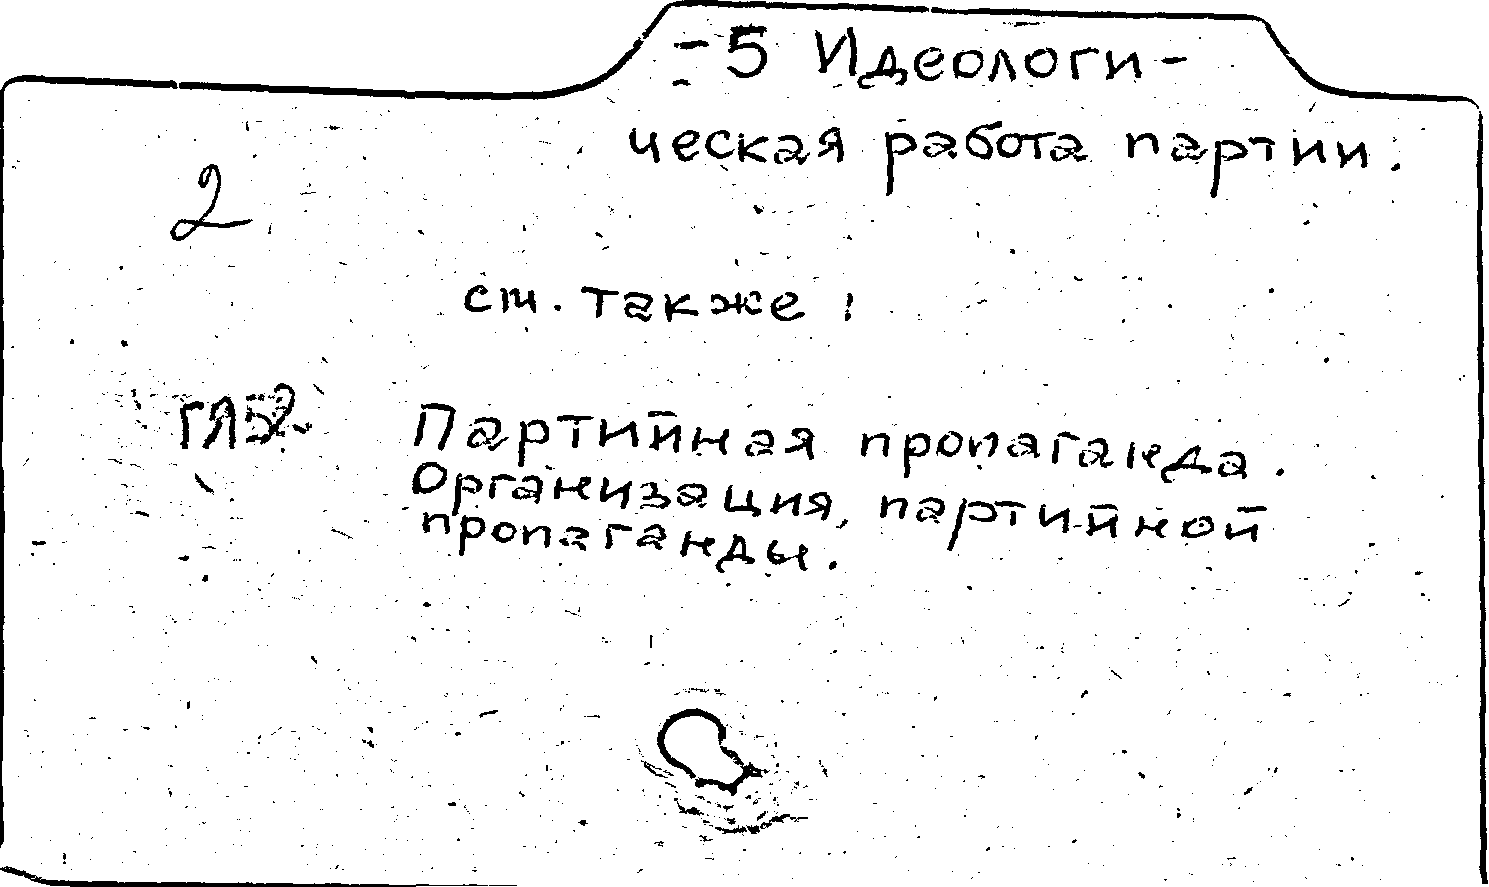 -5 Идеологи-
ческая работа партии.
2
см. также:
Партийная пропаганда.
Организация, партийной
пропаганды.